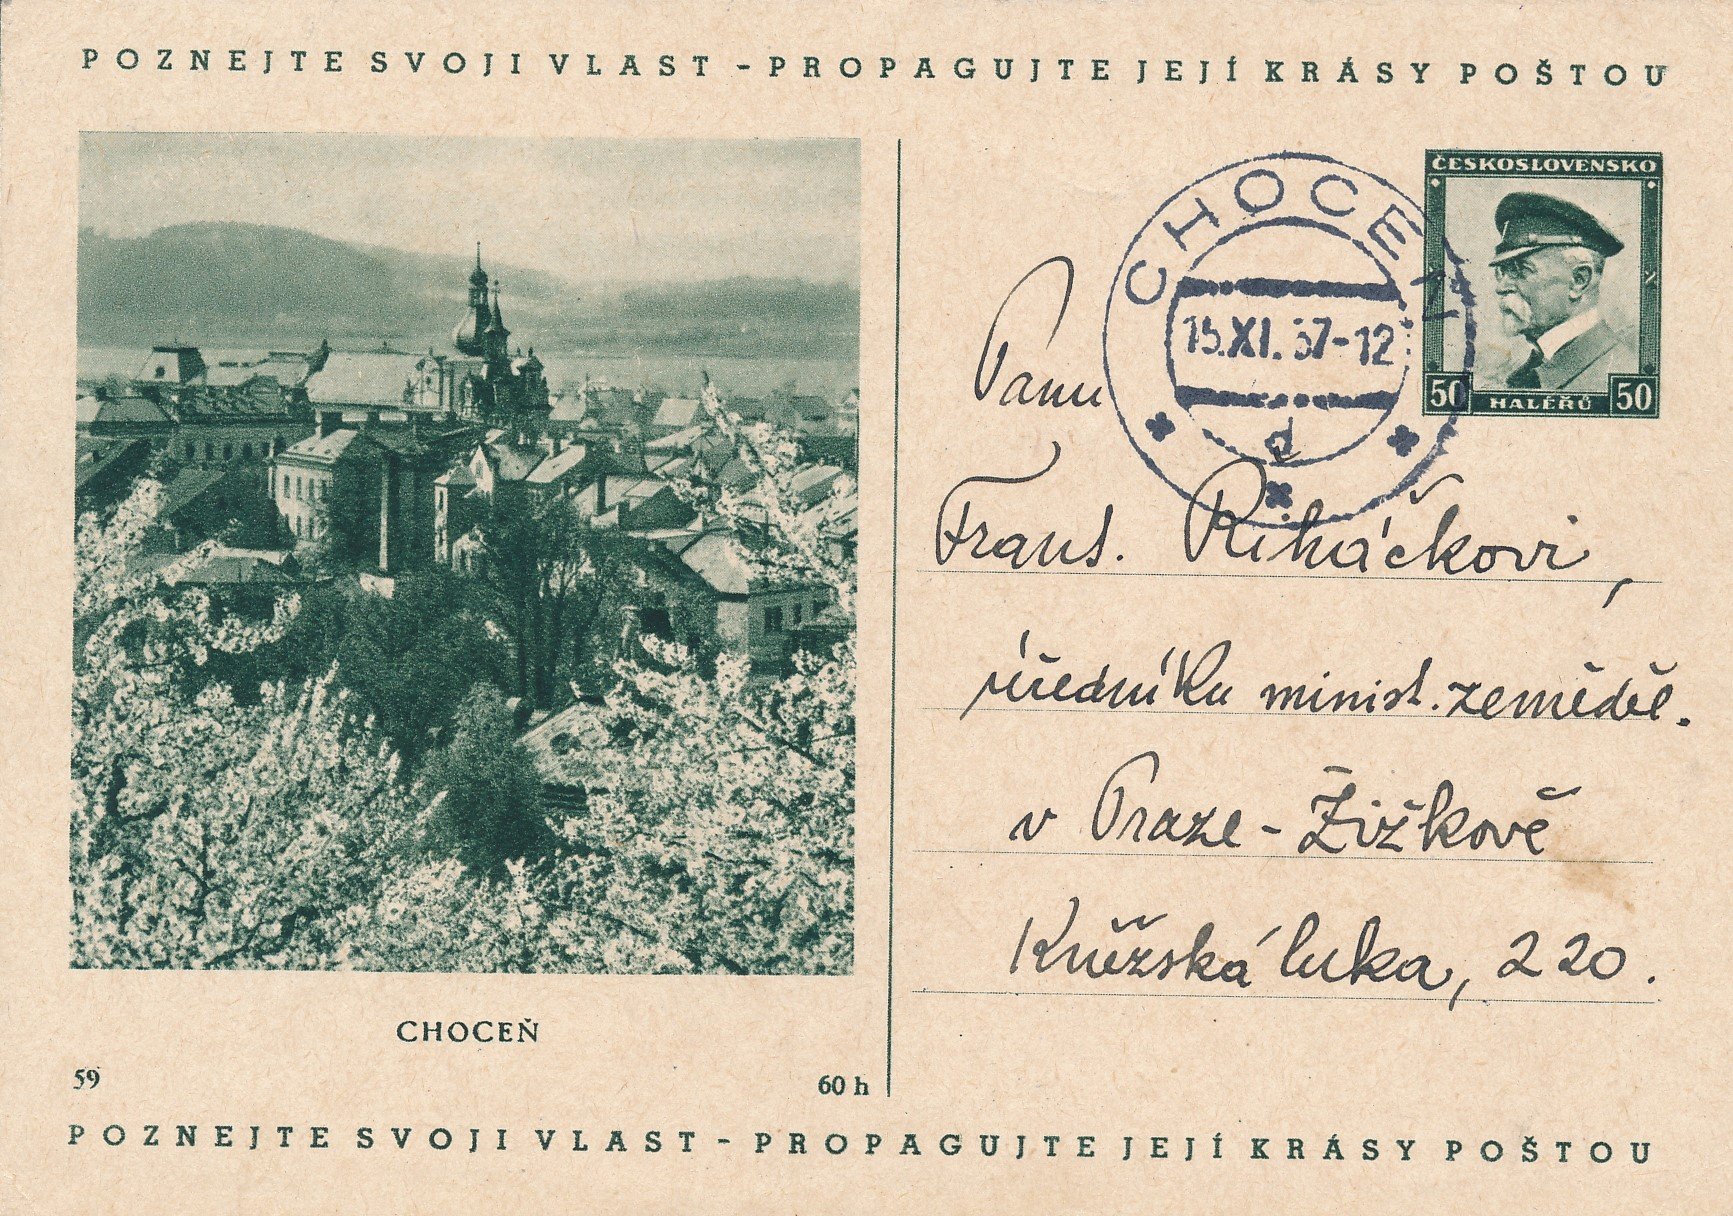 POZNEJTE SVOJI VLAST - PROPAGUJTE JEJÍ KRÁSY POŠTOU
ČESKOSLOVENSKO
50 HALÉŘŮ 50
CHOCEŇ
15.XI.37-12
d
Panu
Frant. Řiháčkovi,
úředníku minist. zeměděl.
v Praze - Žižkově
Kněžská luka, 220.
CHOCEŇ
59
60 h
POZNEJTE SVOJI VLAST - PROPAGUJTE JEJÍ KRÁSY POŠTOU